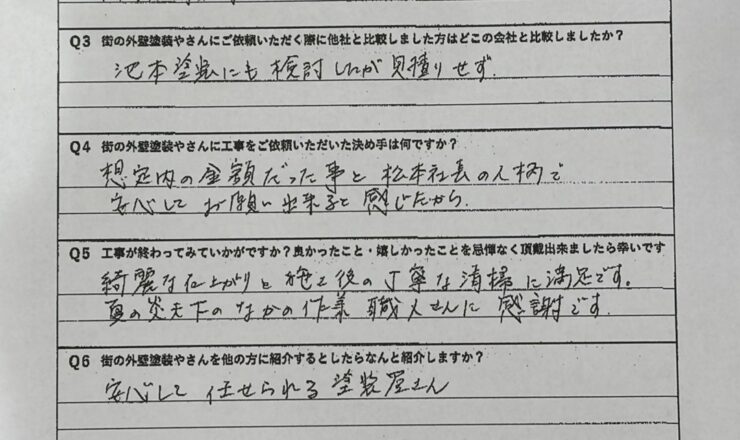 Q3 街の外壁塗装やさんにご依頼いただく際に他社と比較しました方はどこの会社と比較しましたか？
池本塗装にも検討したが見積りせず.
Q4 街の外壁塗装やさんに工事をご依頼いただいた決め手は何ですか？
想定内の金額だった事と松本社長の人柄で
安心してお願い出来ると感じたから.
Q5 工事が終わってみていかがですか？良かったこと・嬉しかったことを忌憚なく頂戴出来ましたら幸いです
綺麗な仕上がりと施工後の丁寧な清掃に満足です。
夏の炎天下のなかの作業 職人さんに感謝です.
Q6 街の外壁塗装やさんを他の方に紹介するとしたらなんと紹介しますか？
安心して任せられる塗装屋さん